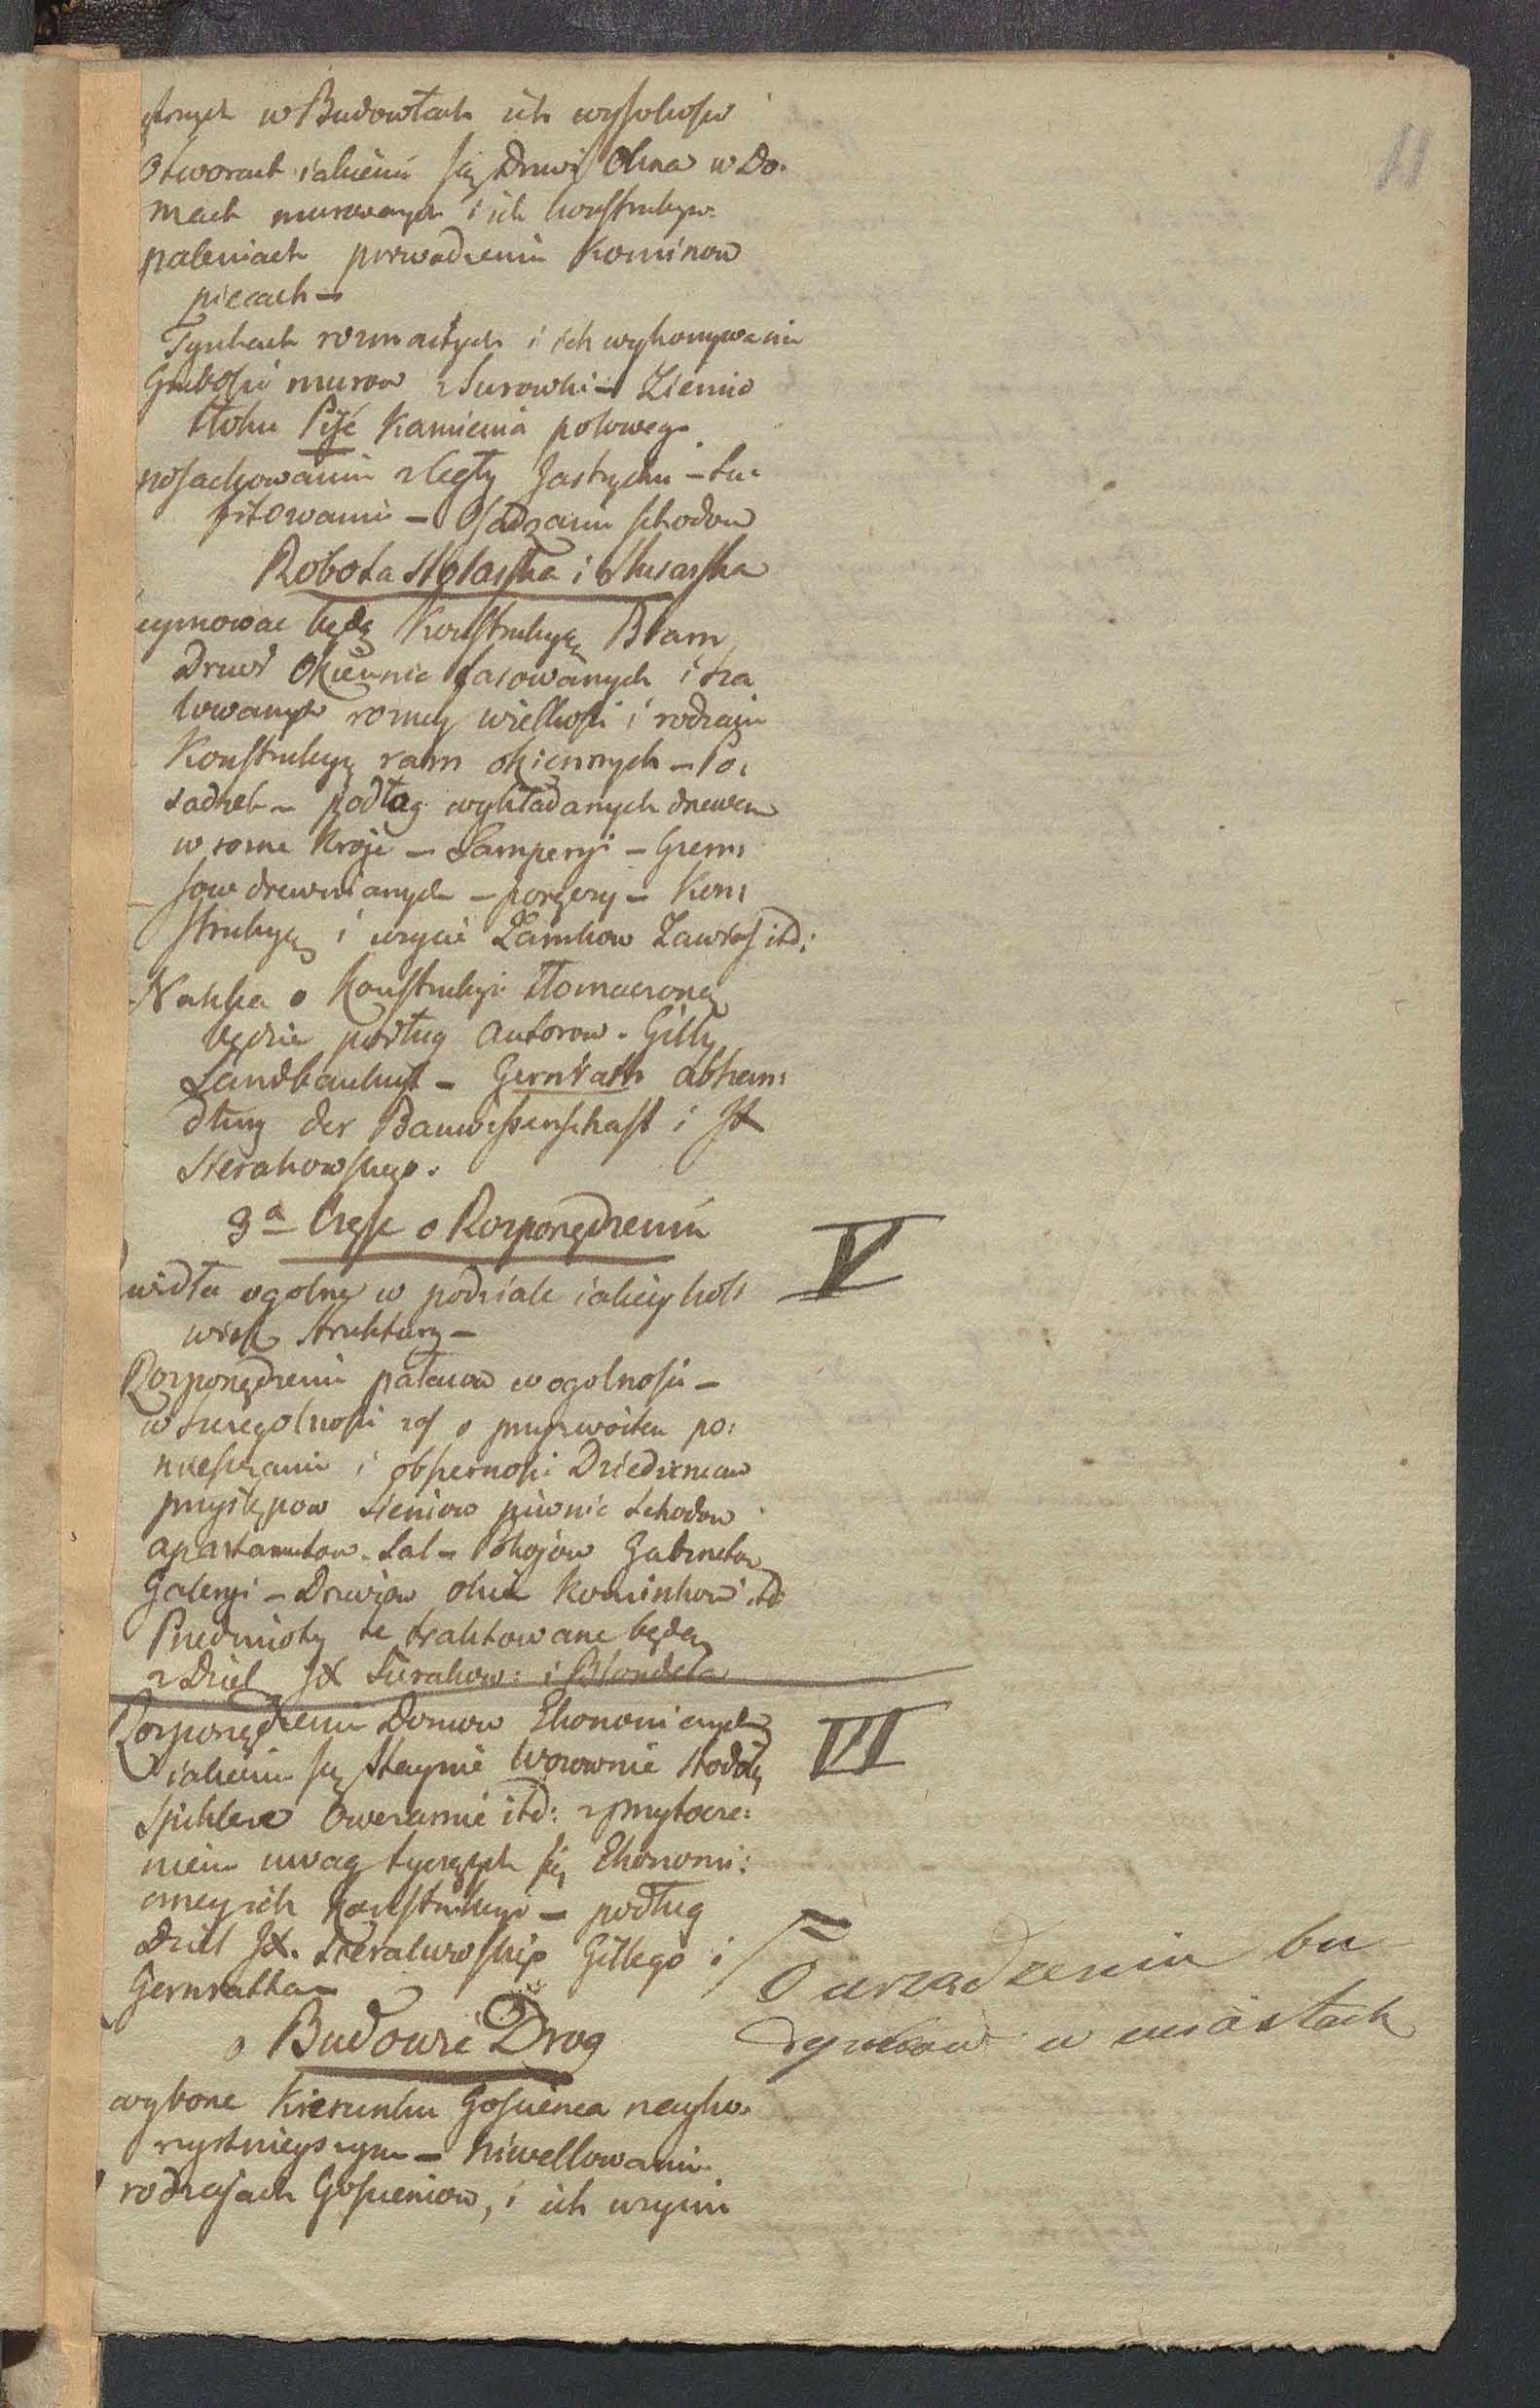 11
w Budowlach ich wysokości
Otworach iakiemi są Drzwi Okna w Do:
mach murowanych i ich konstrukcyi
paleniach prowadzeniu Kominow
piecach —
Tynkach rozmaitych i ich wykonywaniu
Grubości murow z Surowki — Ziemi
tłoku Pisé Kamienia polowego
posadzkowaniu z Cegły Jastrychu — Su:
fitowaniu — Osadzaniu schodow
Robota Stolarska i Slusarska
eymowac będą Konstrukcyą Bram
Drzwi Okiennic fasowanych i 
lowanych rozney wielkości i rodzaju
Konstrukcyą ram okiennych — Po:
sadzek — podłog wykładanych drzewem
w rozne kroje — Lamperyi — Gzem:
sow drewnianych — poręczy — Kon:
strukcyą i uzycie Zamkow Zawias itd:
Nauka o Konstrukcyi tłomaczona
będzie podług autorow. Gilly
Landbaukunst — Gernrath abhan:
dlung der Bauwissenschaft i JX
Sierakowskiego.
3a Częsc o Rozporządzeniu
V
widła ogolne w podziale iakieykol:
wiek Struktury —
Rozporządzeniu pałacow w ogolności —
w Szczegolności zas o przyzwoitem po:
mieszczeniu i obszerności Dziedzincow
przystępow sieniow piwnic schodow
apartamentow. Sal — Pokojow Gabinetow
Galeryi — Drzwiow okien Kominkow itd
Przedmioty te traktowane będą
z Dzieł JX Sierakow: i Blondela
Rozporządzeniu Domow Ekonomicznych
VI
iakiemi są Staynie Wozownie Stodoły
Spichlerze Owczarnie itd: z przytocze:
niem uwag tyczących się Ekonomi:
czney ich Konstrukcyi — podług
Dzieł JX. Sierakowskiego Gillego i
Gernratha —
O urzadzeniu bu
dynkow w miastach
o Budowie Drog
wyborze kierunku Goscienca nayko:
rzystnieyszym — Niwellowaniu
rodzajach Goscieniow, i ich uzyciu